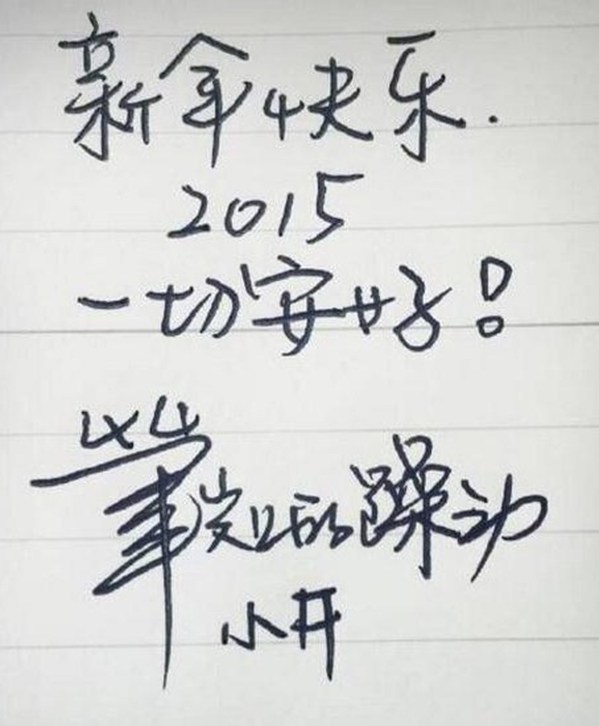 新年快乐.
2015
一切安好!
筆尖上的躁动
小开